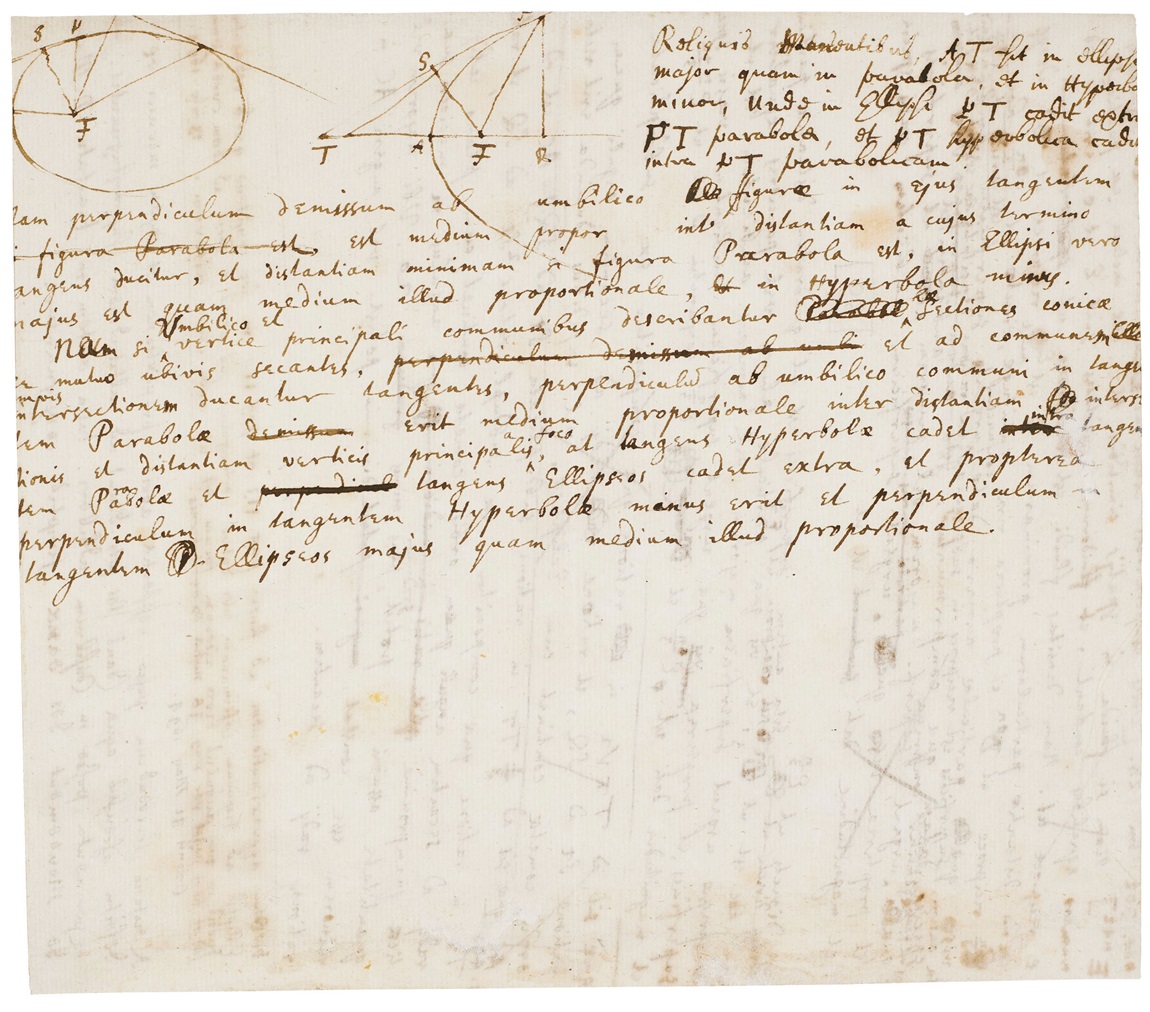 S P
F
S
T A F R
Reliquis Manentibus, AT fit in ellipsi
major quam in parabola, et in Hyperbo
minor, Unde in Ellipsi PT cadit extra
PT parabolæ, et PT hyperbolica cadit
intra PT parabolicam.
tam perpendiculum demissum ab umbilico figuræ in ejus tangentem
figura Parabola est, est medium propor int distantiam a cujus termino
angens ducitur, et distantiam minimam si figura Parabola est, in Ellipsi vero
majus est quam medium illud proportionale, et in Hyperbola minus.
Nam si Umbilico et vertice principali communibus describantur Parabolæ tres Sectiones conicæ
se mutuo ubivis secantes, perpendiculum demissum ab umbi et ad communem
intersectionem ducantur tangentes, perpendiculū ab umbilico communi in tangen
tem Parabolæ demissum erit medium proportionale inter distantiam intersec
tionis et distantiam verticis principalis a foco, at tangens Hyperbolæ cadet inter intra tangen
tem Parabolæ et perpendicul tangens Ellipseos cadet extra, et propterea
perpendiculum in tangentem Hyperbolæ minus erit et perpendiculum in
tangentem Ellipseos majus quam medium illud proportionale.